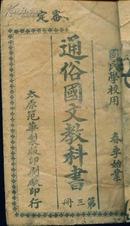 審定
國民學校用
春季始業
通俗國文教科書
第三冊
太原范華製版印刷廠印行